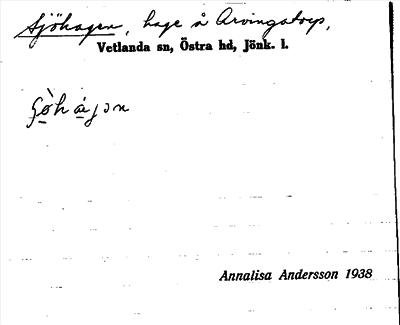 Sjöhagen, hage å Arvingatorp,
Vetlanda sn, Östra hd, Jönk. l.
Annalisa Andersson 1938